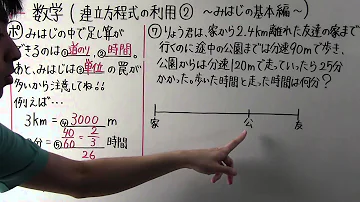 数学(連立方程式の利用② ～みはじの基本編～)
ポ みはじの中で足し算が
できるのは①道のり、②時間。
あと、みはじは③単位の罠が
多いから注意してね!!
例えば…
3km=④3000 m
分=⑤40/60=2/3時間
26
⑦りょう君は、家から2.4km離れた友達の家まで
行くのに途中の公園までは分速90mで歩き、
公園からは分速120mで走っていったら25分
かかった。歩いた時間と走った時間は何分?
家 公 友